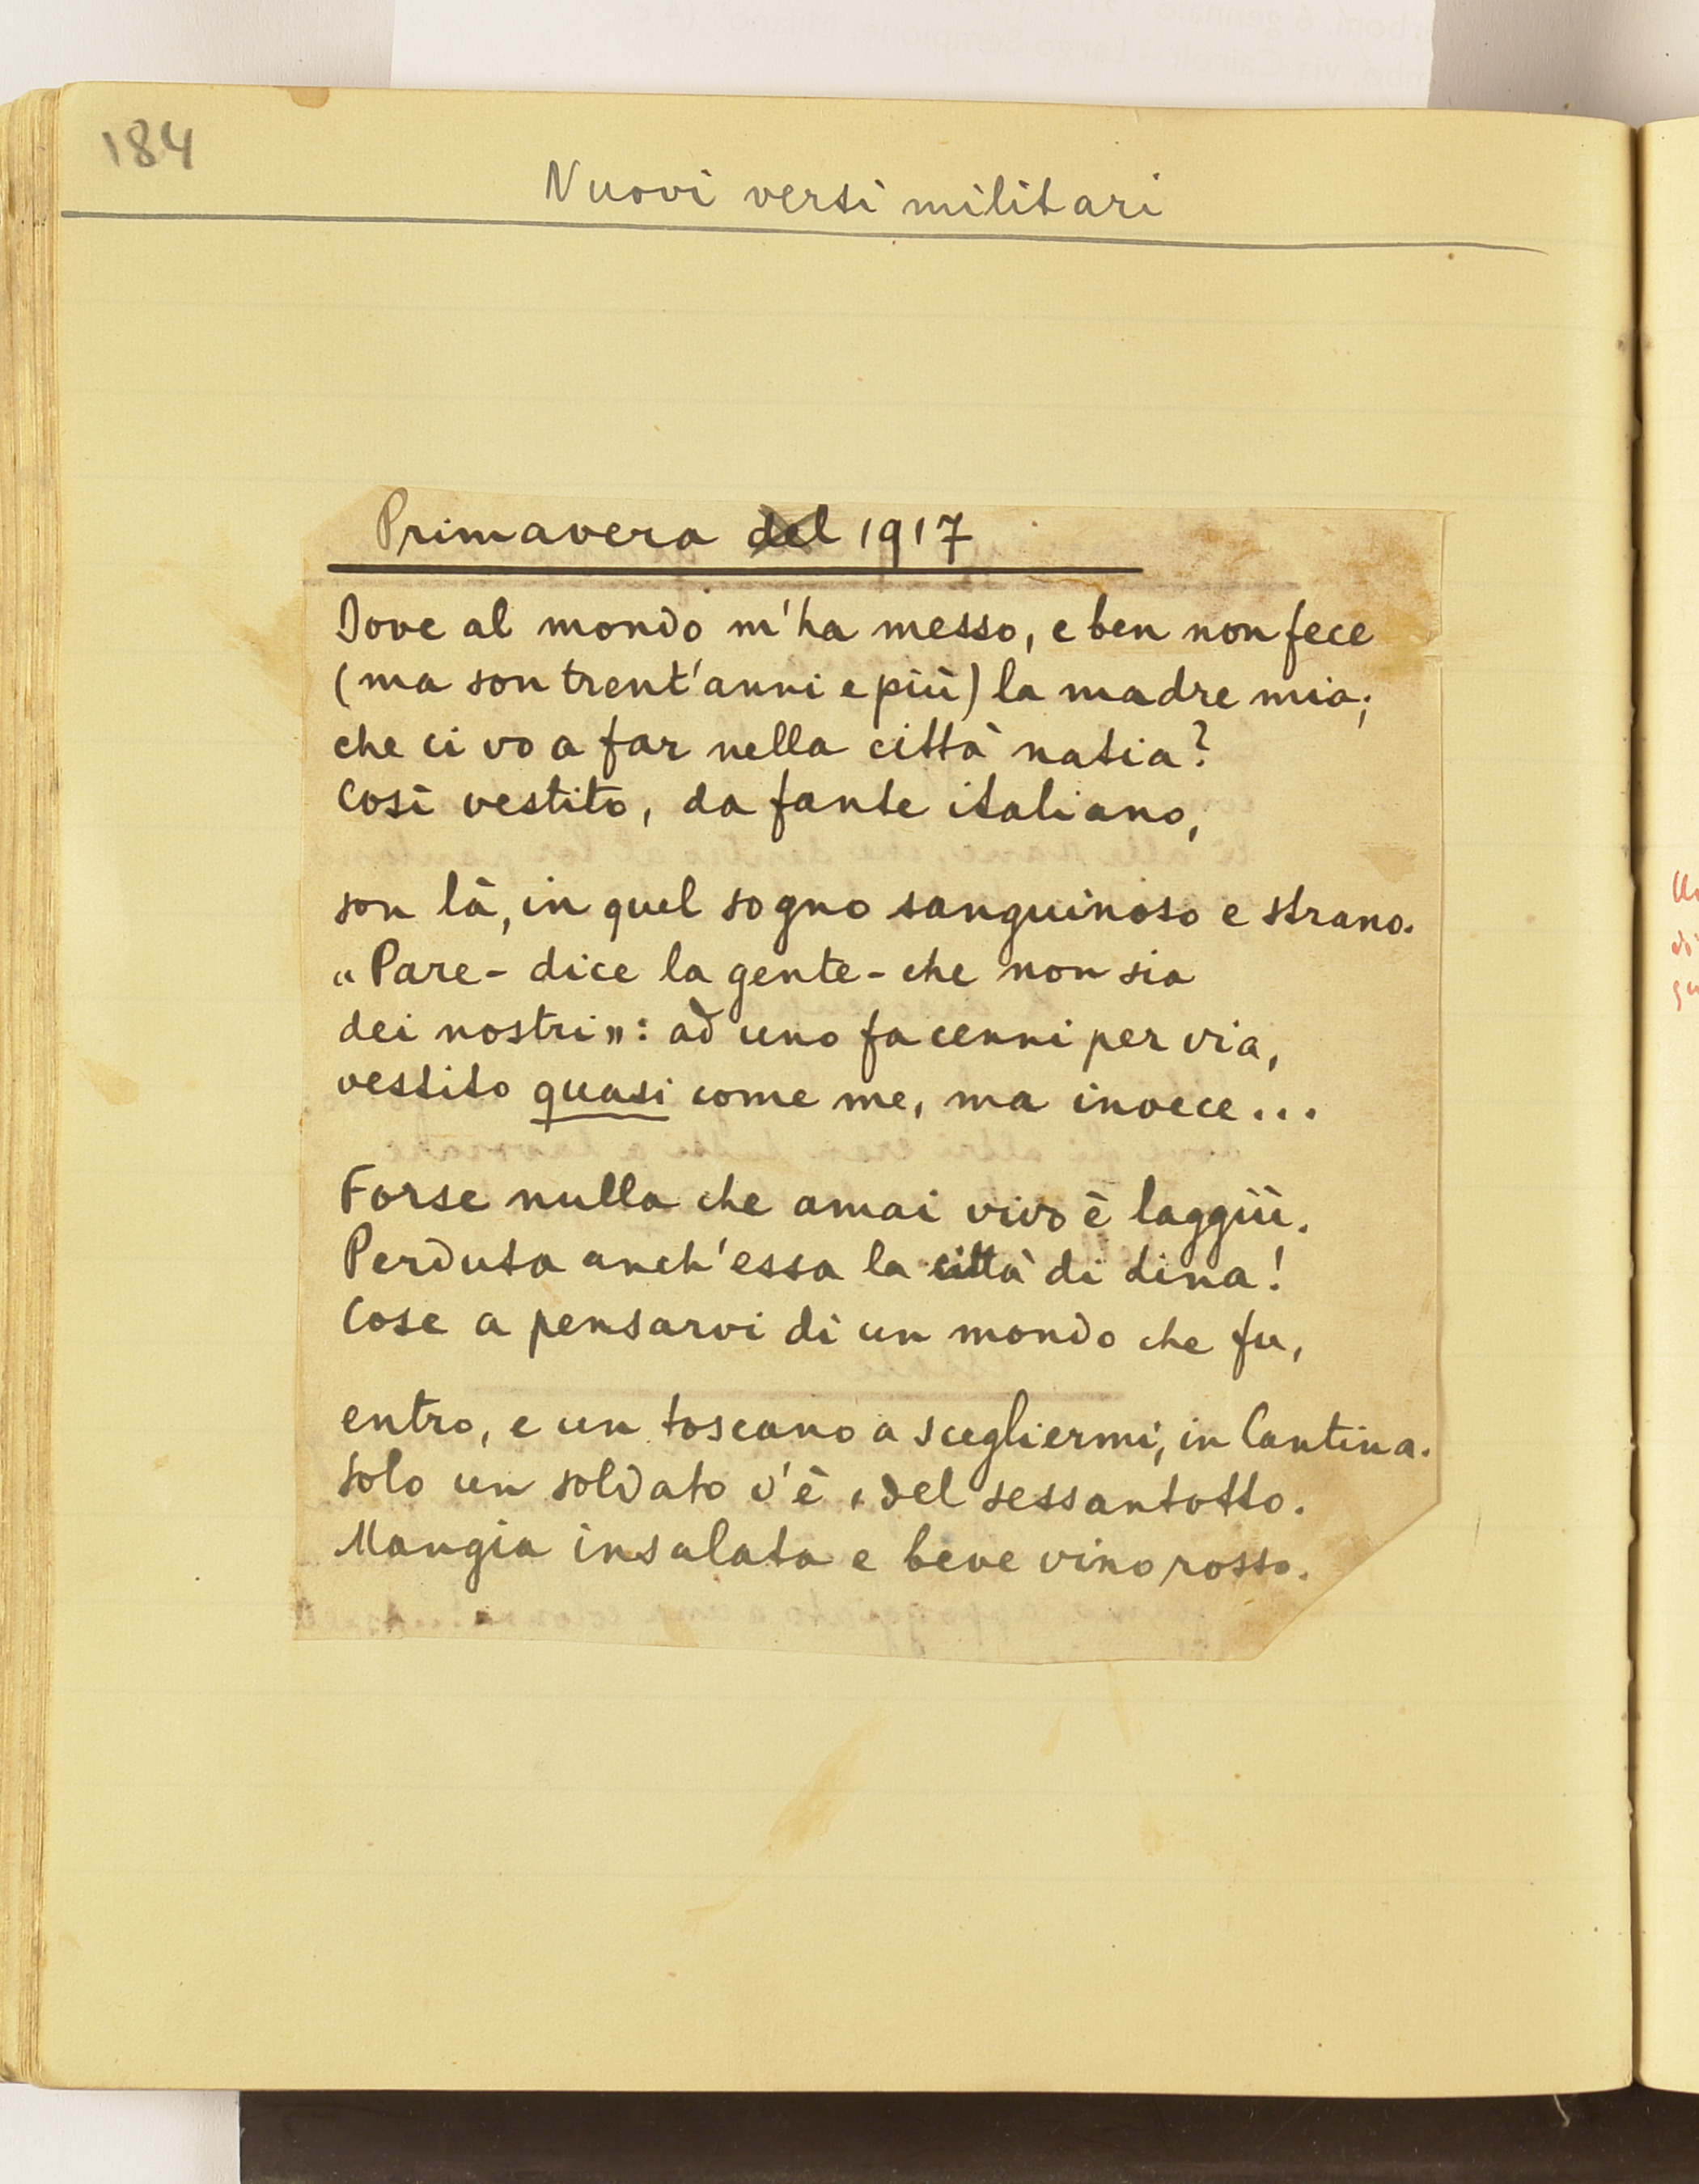 184
Nuovi versi militari
Primavera del 1917
Dove al mondo m'ha messo, e ben non fece
(ma son trent'anni e più) la madre mia;
che ci vo a far nella città natia?
Così vestito, da fante italiano,
son là, in quel sogno sanguinoso e strano.
"Pare - dice la gente - che non sia
dei nostri": ad uno fa cenni per via,
vestito quasi come me, ma invece...
Forse nulla che amai vivo è laggiù.
Perduta anch'essa la città di Lina!
Cose a pensarvi di un mondo che fu,
entro, e un toscano a scegliermi, in Cantina.
Solo un soldato v'è, del sessantotto.
Mangia insalata e beve vino rosso.